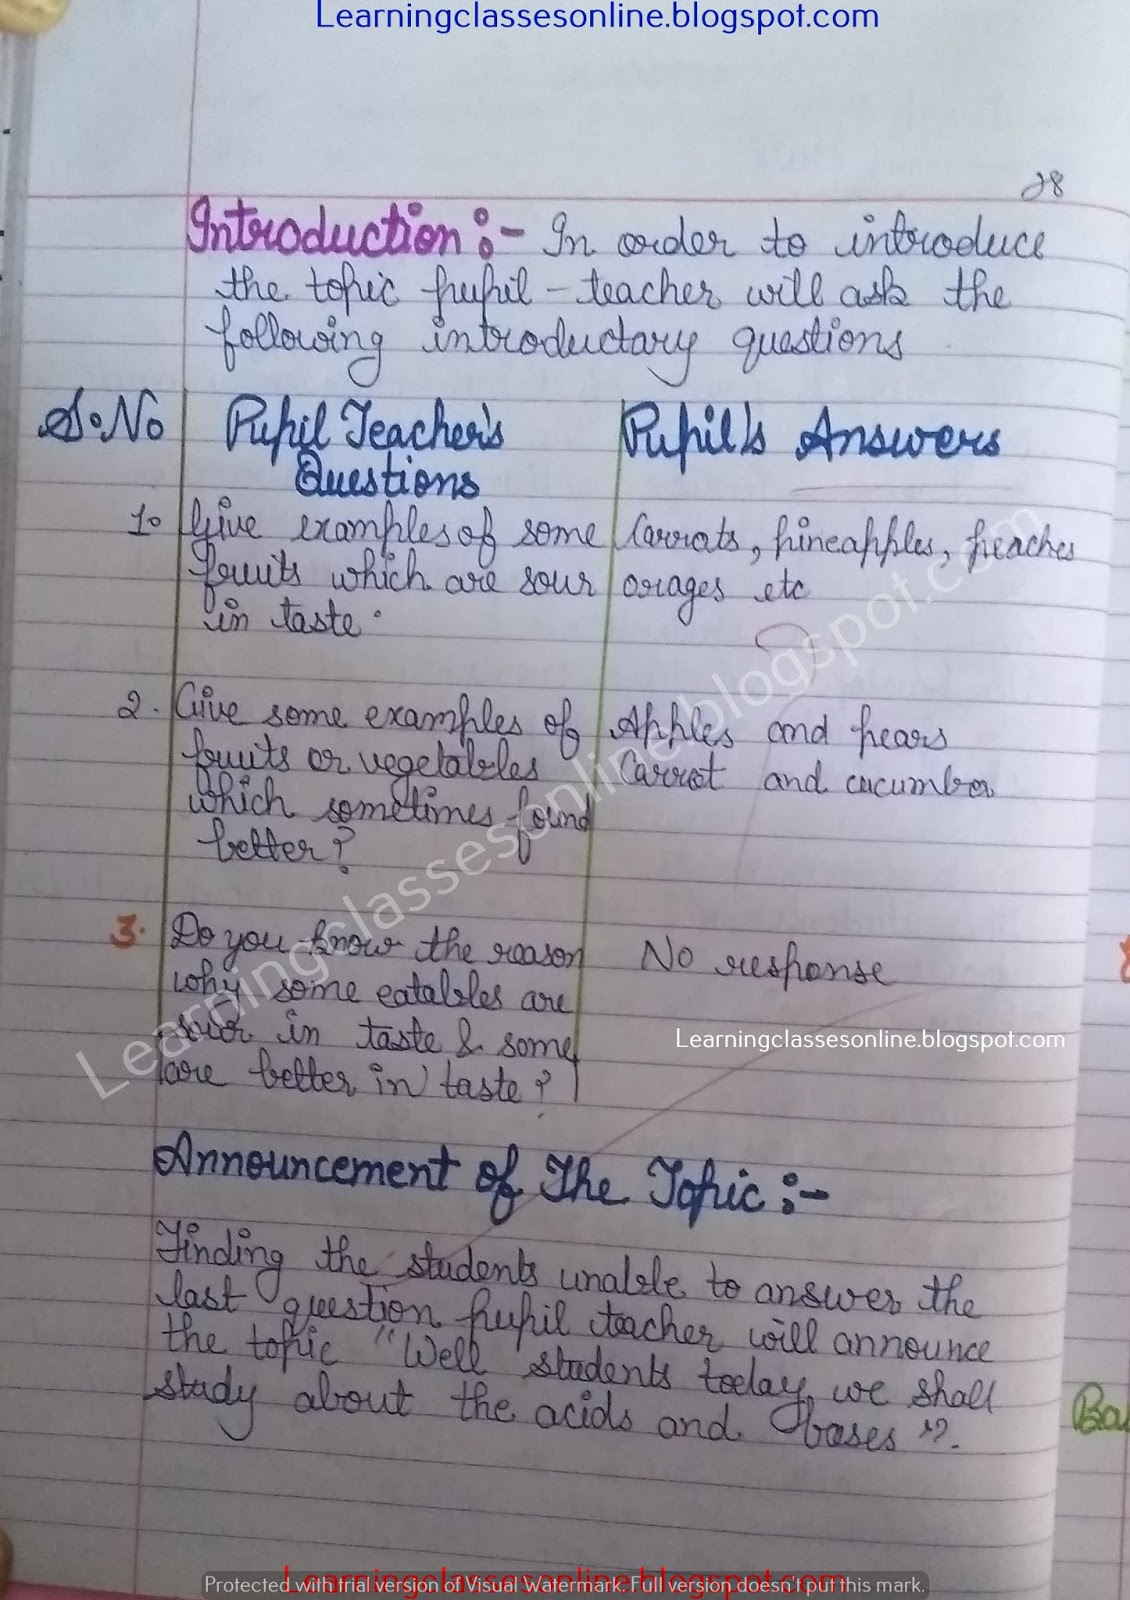 Learningclassesonline.blogspot.com
28
Introduction :- In order to introduce
the topic pupil-teacher will ask the
following introductary questions
S.No Pupil Teacher's Pupil's Answers
Questions
1. Give examples of some Carrats, pineapples, peaches
fruits which are sour orages etc
in taste.
2. Give some examples of Apples and pears
fruits or vegetables Carrot and cucumber
which sometimes found
better?
3. Do you know the reason No response
why some eatables are
sour in taste & some
are better in taste?
Learningclassesonline.blogspot.com
Learningclassesonline.blogspot.com
Announcement of The Topic :-
Finding the students unable to answer the
last question pupil teacher will announce
the topic "Well students today we shall
study about the acids and bases".
Ba
Learningclassesonline.blogspot.com
Protected with trial version of Visual Watermark. Full version doesn't put this mark.